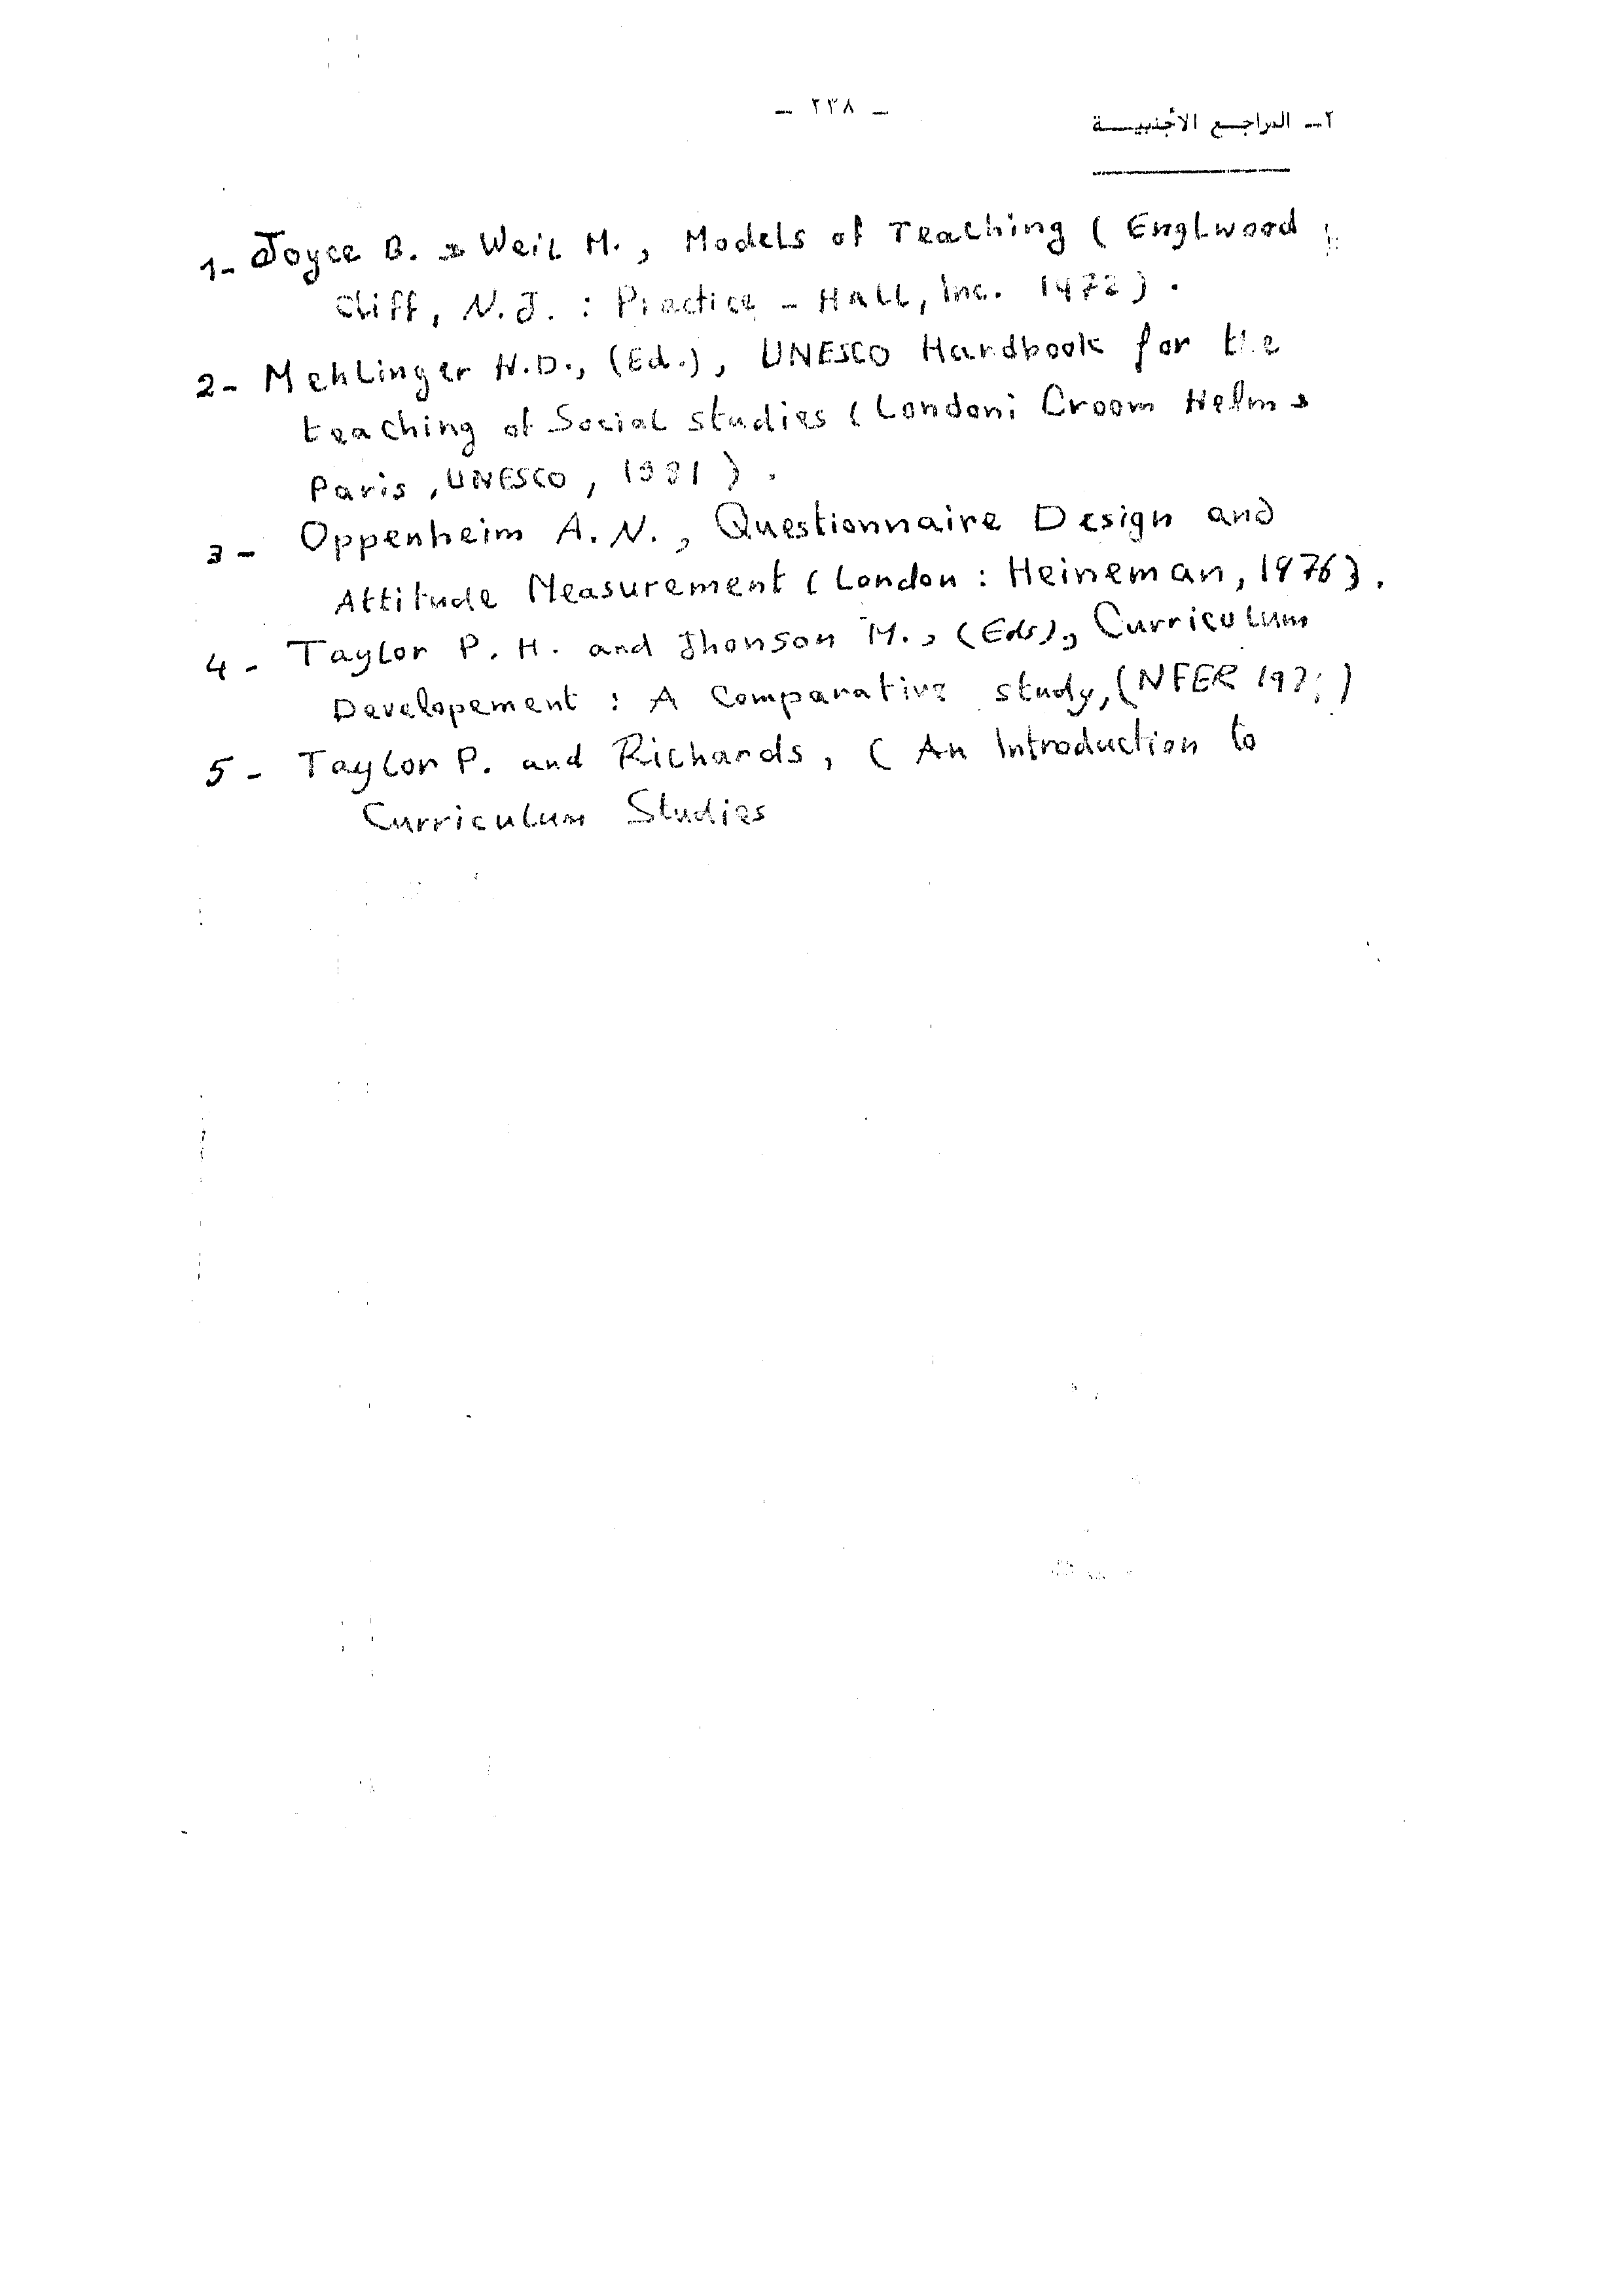 - ٢٣٨ -
٢- المراجع الأجنبية
1- Joyce B. & Weil M., Models of Teaching ( Englwood
Cliff, N.J. : Practice - Hall, Inc. 1972 ) .
2- Mehlinger H.D., (Ed.), UNESCO Handbook for the
teaching of Social studies ( London: Croom Helm &
Paris , UNESCO, 1981 ) .
3 - Oppenheim A. N., Questionnaire Design and
Attitude Measurement ( London : Heineman, 1976 ) .
4 - Taylor P. H. and Jhonson M., (Eds), Curriculum
Developement : A Comparative study, ( NFER )
5 - Taylor P. and Richards, ( An Introduction to
Curriculum Studies